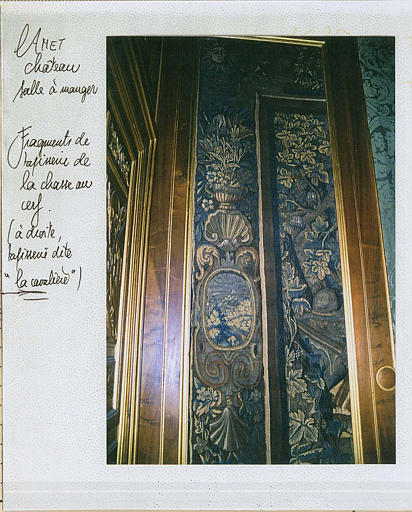 ANET
château
salle à manger
Fragments de
tapisserie de
la chasse au
cerf.
(à droite,
tapisserie dite
"la cavalière")